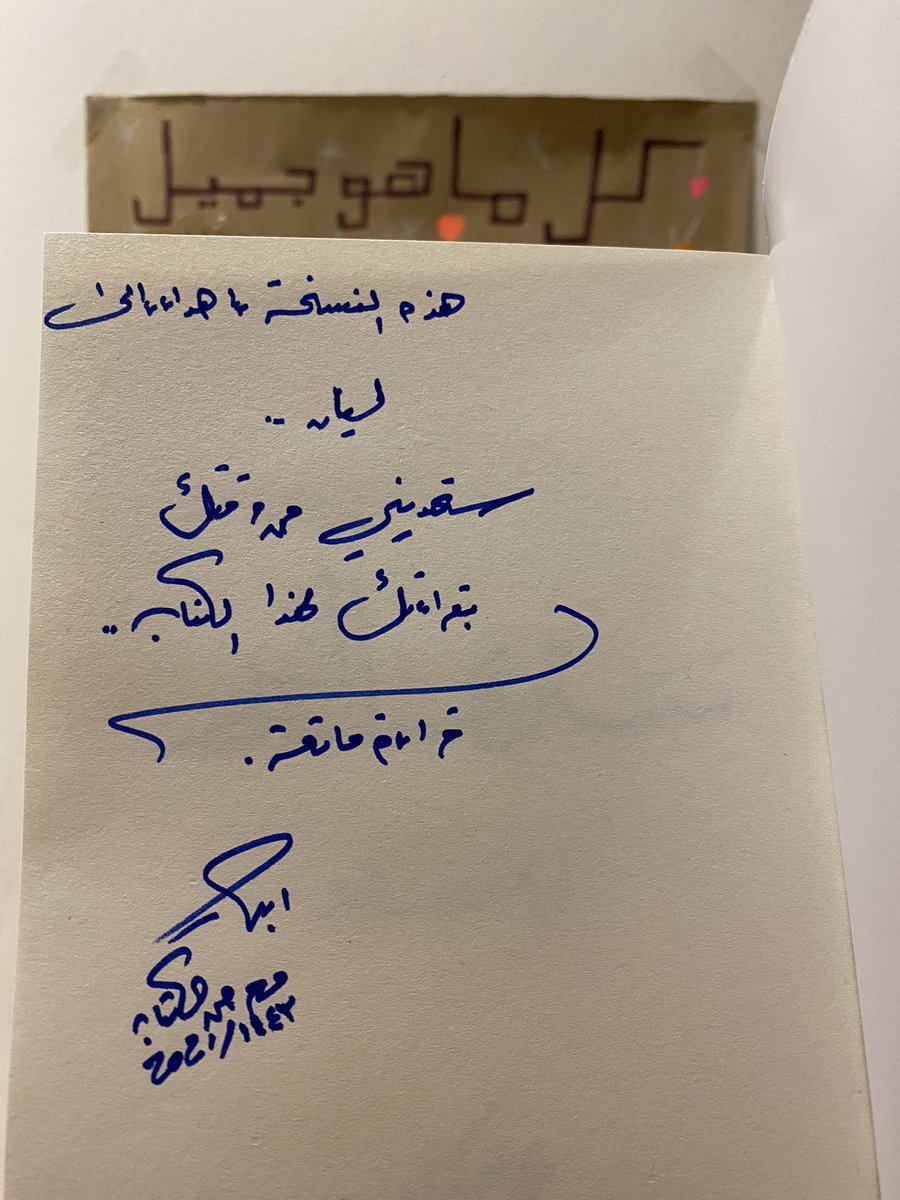 كل ما هو جميل
هذه النسخة بإهدائي إلى
ليان ..
ستهديني من وقتك
بقراءتك لهذا الكتاب ..
قراءة ماتعة .
معرض الكتاب
2021/1443